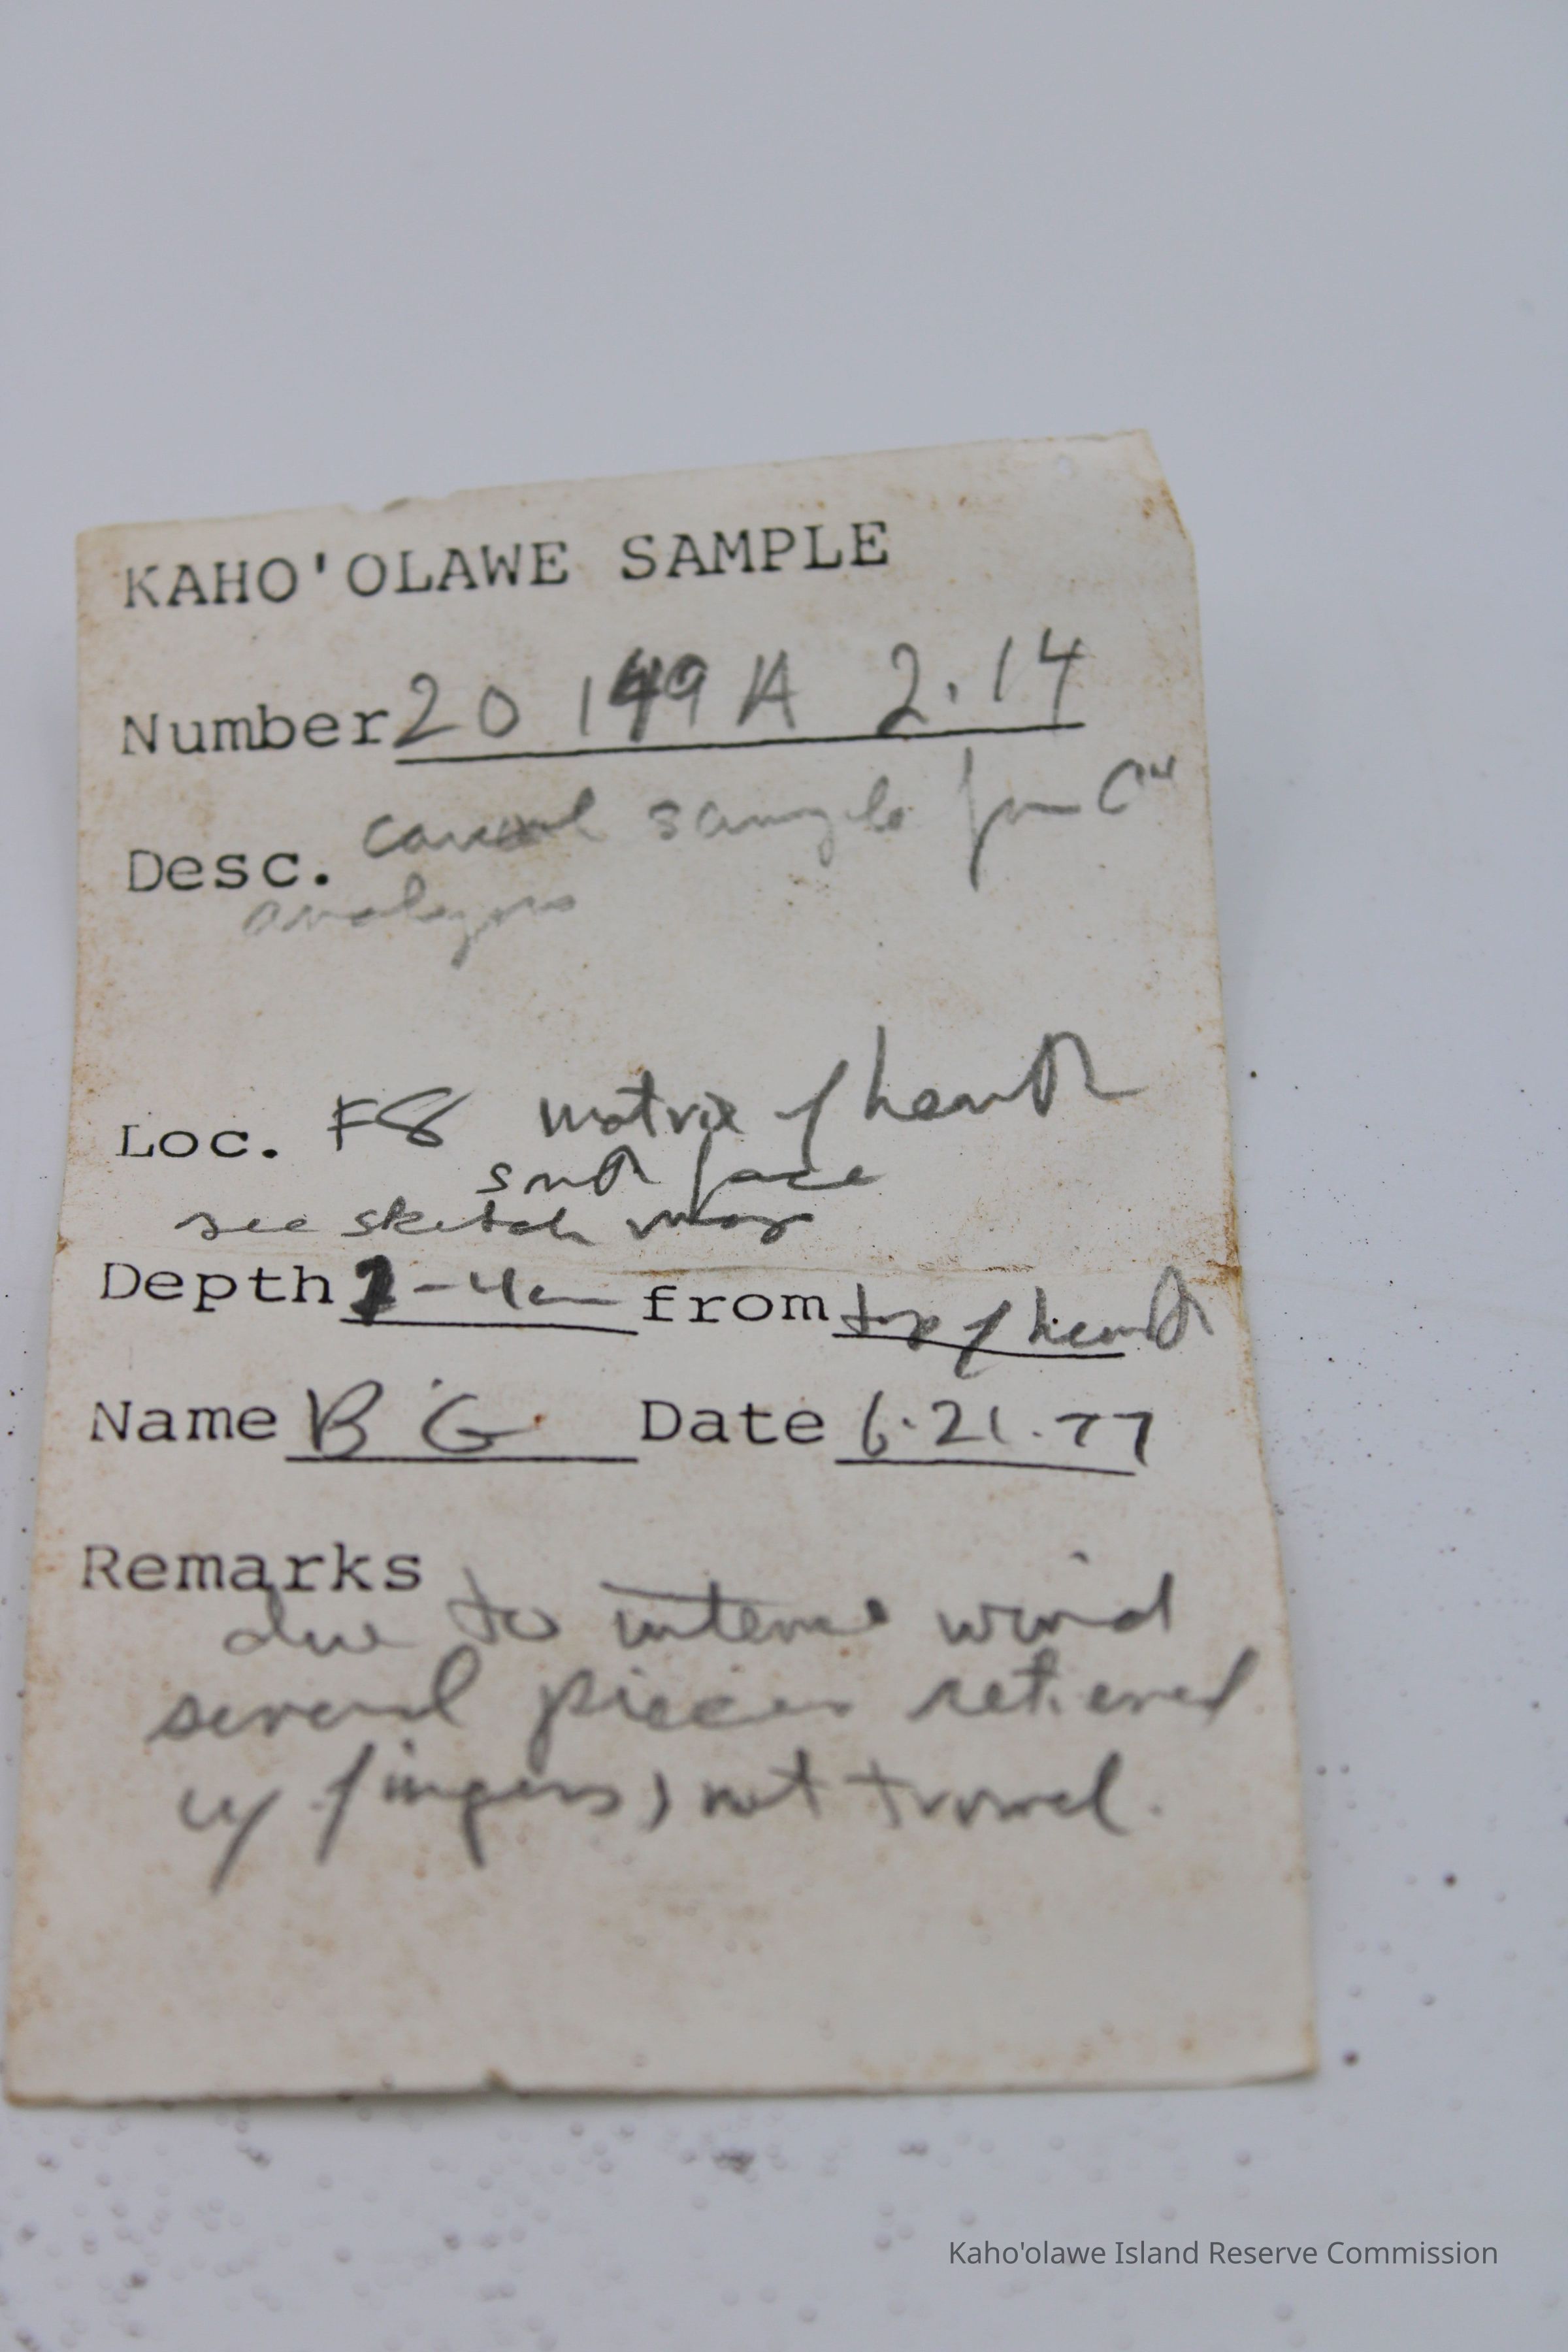 KAHO'OLAWE SAMPLE
Number 20 149 A 2.14
Desc. sample for C14
analysis
Loc. F8 matrix of hearth
south face
see sketch map
Depth -4cm from top of hearth
Name B G Date 6.21.77
Remarks
due to intense wind
several pieces retieved
w/ fingers, not trowel.
Kaho'olawe Island Reserve Commission